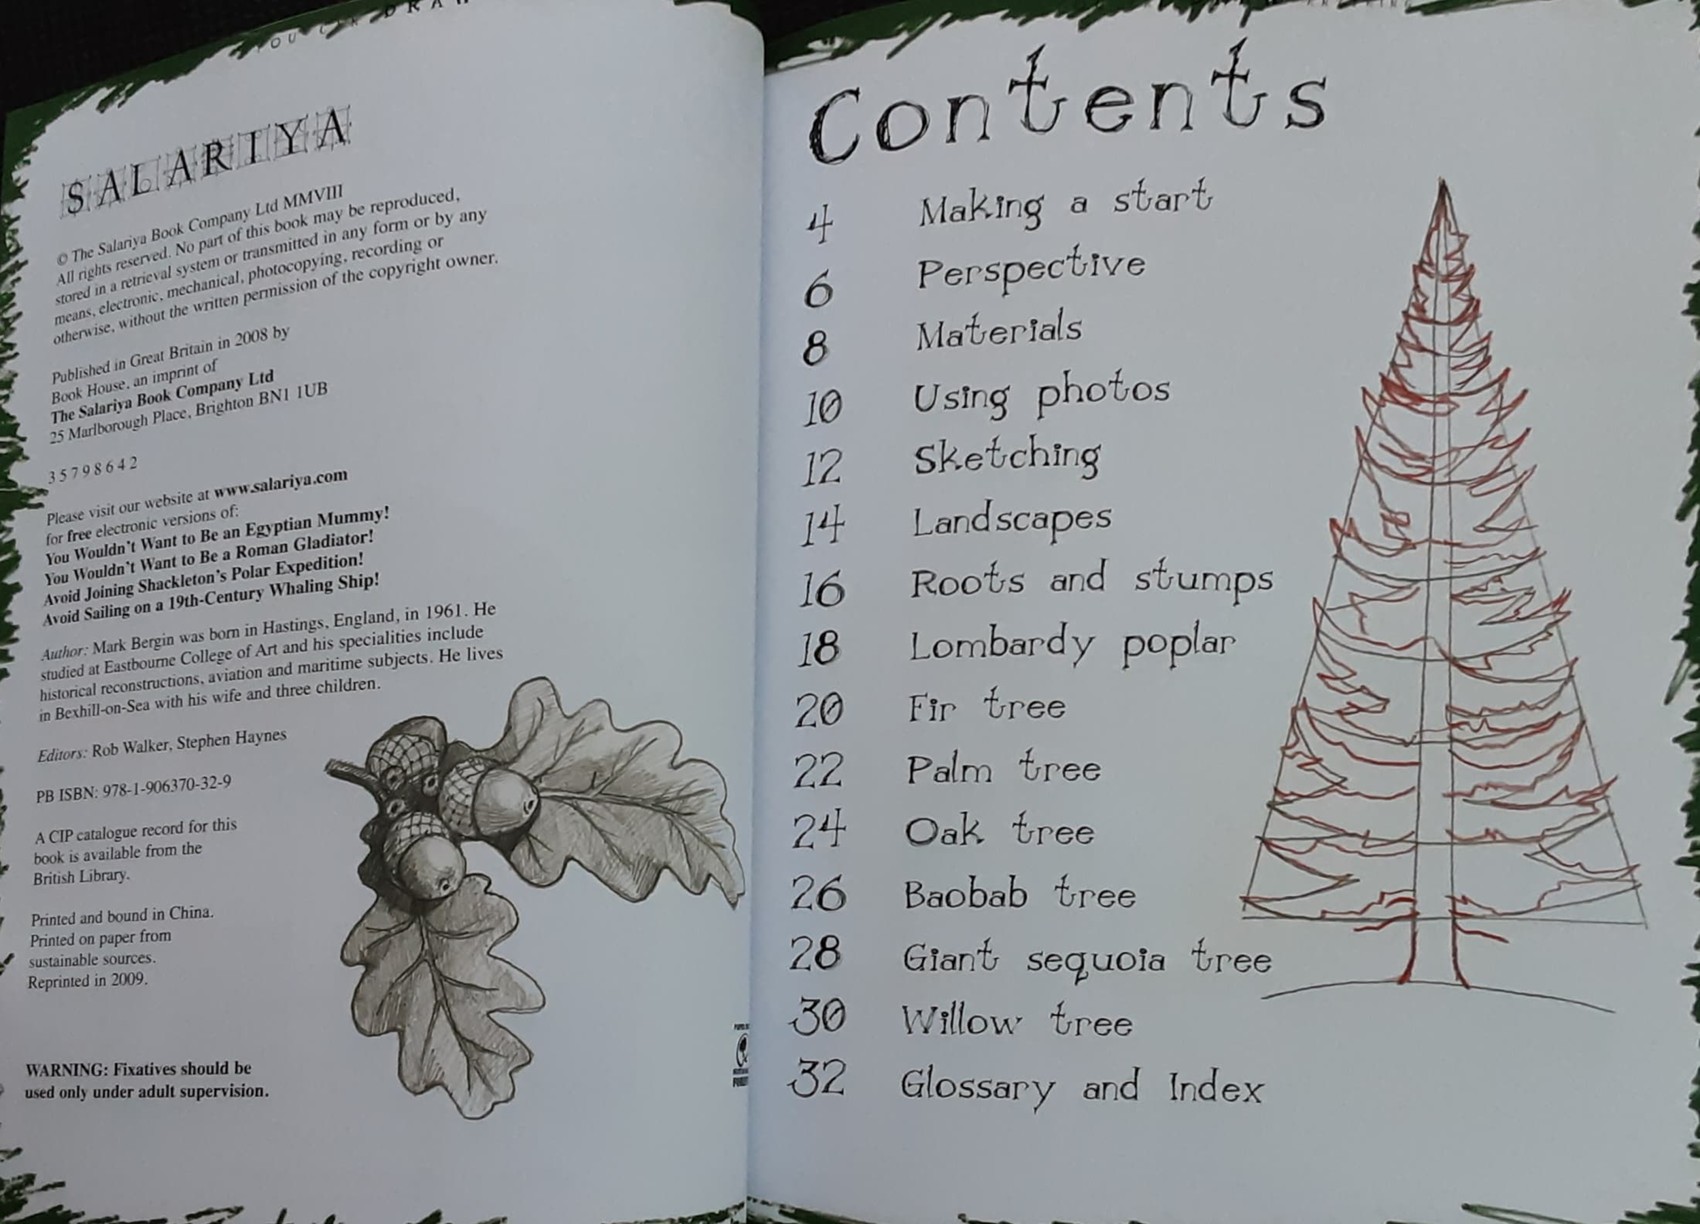 SALARIYA
© The Salariya Book Company Ltd MMVIII
All rights reserved. No part of this book may be reproduced,
stored in a retrieval system or transmitted in any form or by any
means, electronic, mechanical, photocopying, recording or
otherwise, without the written permission of the copyright owner.
Published in Great Britain in 2008 by
Book House, an imprint of
The Salariya Book Company Ltd
25 Marlborough Place, Brighton BN1 1UB
3 5 7 9 8 6 4 2
Please visit our website at www.salariya.com
for free electronic versions of:
You Wouldn't Want to Be an Egyptian Mummy!
You Wouldn't Want to Be a Roman Gladiator!
Avoid Joining Shackleton's Polar Expedition!
Avoid Sailing on a 19th-Century Whaling Ship!
Author: Mark Bergin was born in Hastings, England, in 1961. He
studied at Eastbourne College of Art and his specialities include
historical reconstructions, aviation and maritime subjects. He lives
in Bexhill-on-Sea with his wife and three children.
Editors: Rob Walker, Stephen Haynes
PB ISBN: 978-1-906370-32-9
A CIP catalogue record for this
book is available from the
British Library.
Printed and bound in China.
Printed on paper from
sustainable sources.
Reprinted in 2009.
WARNING: Fixatives should be
used only under adult supervision.
Contents
4 Making a start
6 Perspective
8 Materials
10 Using photos
12 Sketching
14 Landscapes
16 Roots and stumps
18 Lombardy poplar
20 Fir tree
22 Palm tree
24 Oak tree
26 Baobab tree
28 Giant sequoia tree
30 Willow tree
32 Glossary and Index